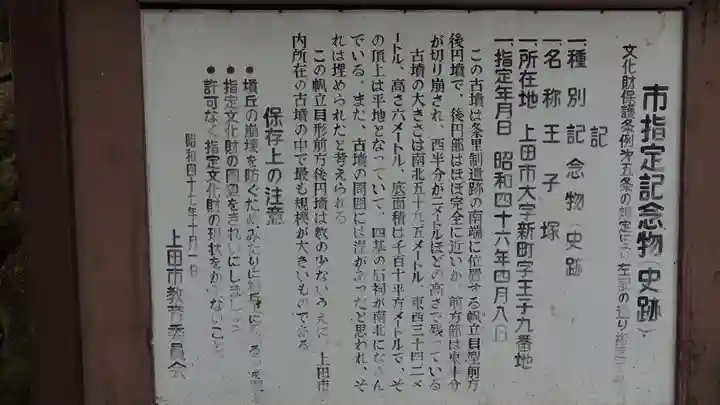 市指定記念物(史跡)
文化財保護条例第五条の規定により左記の通り指定
記
一、種別 記念物 史跡
一、名称 王子塚
一、所在地 上田市大字新町字王子九番地
一、指定年月日 昭和四十六年四月八日
この古墳は条里制遺跡の南端に位置する帆立貝型前方
後円墳で、後円部はほぼ完全に近いが、前方部は東半分
が切り崩され、西半分が二メートルほどの高さで残っている
古墳の大きさは南北五十九五メートル、東西三十四二メ
ートル、高さ六メートル、底面積は千百十平方メートルで、そ
の頂上は平地となっていて、四基の石祠が南北にならん
でいる。また、古墳の周囲には湟があったと思われ、そ
れは埋められたと考えられる
この帆立貝形前方後円墳は数の少ないうえに、上田市
内所在の古墳の中で最も規模が大きいものである
保存上の注意
●墳丘の崩壊を防ぐためみだりに墳丘に
●指定文化財の周辺をきれいにしましょう
●許可なく指定文化財の現状をかえないこと
昭和四十七年十月一日
上田市教育委員会